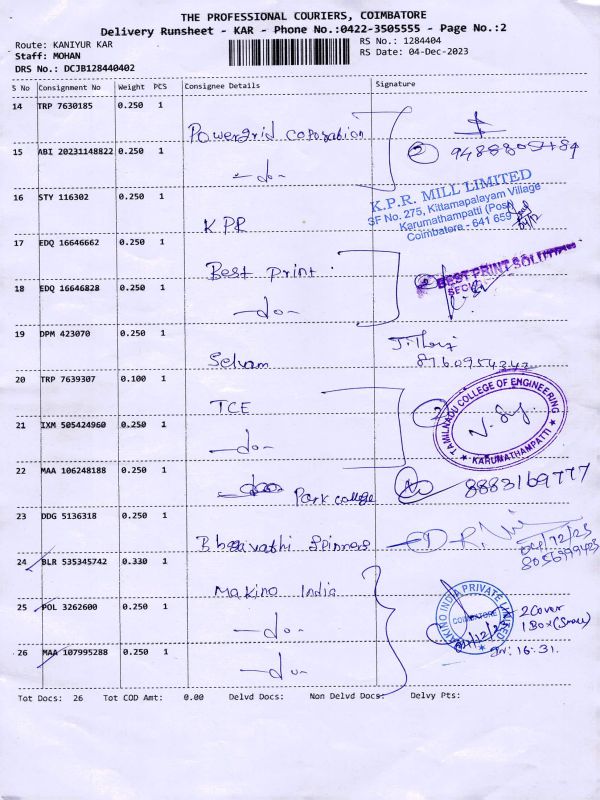 THE PROFESSIONAL COURIERS, COIMBATORE
Delivery Runsheet - KAR - Phone No.:0422-3505555 - Page No.:2
Route: KANIYUR KAR
RS No.: 1284404
Staff: MOHAN
RS Date: 04-Dec-2023
DRS No.: DCJB128440402
S No Consignment No Weight PCS Consignee Details Signature
14 TRP 7630185 0.250 1
Powergrid coporation
15 ABI 20231148822 0.250 1
2
-do-
16 STY 116302 0.250 1
K.P.R. MILL LIMITED
SF No. 275, Kittampalayam Village
Karumathampatti (Post)
Coimbatore - 641 659
KPR
17 EDQ 16646662 0.250 1
Best print
BEST PRINT SOLUTIONS
18 EDQ 16646828 0.250 1
-do-
19 DPM 423070 0.250 1
Selvam
20 TRP 7639307 0.100 1
TCE
2
TAMILNADU COLLEGE OF ENGINEERING
★ KARUMATHAMPATTI ★
21 IXM 505424960 0.250 1
-do-
22 MAA 106248188 0.250 1
Park college
8883169777
23 DDG 5136318 0.250 1
Bhagavathi Spinners
24 BLR 535345742 0.330 1
Makino India
MAKINO INDIA PRIVATE LIMITED
COIMBATORE
25 POL 3262600 0.250 1
2 Cover
1 Box (Small)
-do-
26 MAA 107995288 0.250 1
16:31
-do-
Tot Docs: 26 Tot COD Amt: 0.00 Delvd Docs: Non Delvd Docs: Delvy Pts: